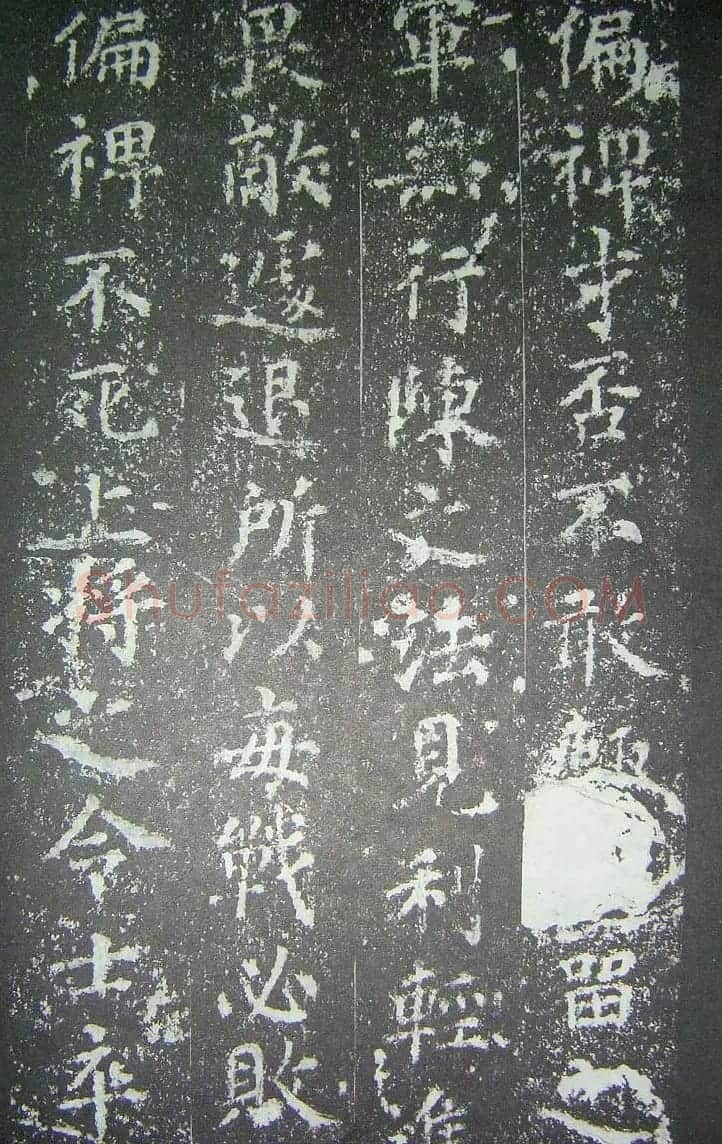 偏裨才否不取輕留之
軍無行陳之法見利輕進
畏敵遽退所以每戰必敗
偏裨不死上將之令士卒
Shufaziliao.COM